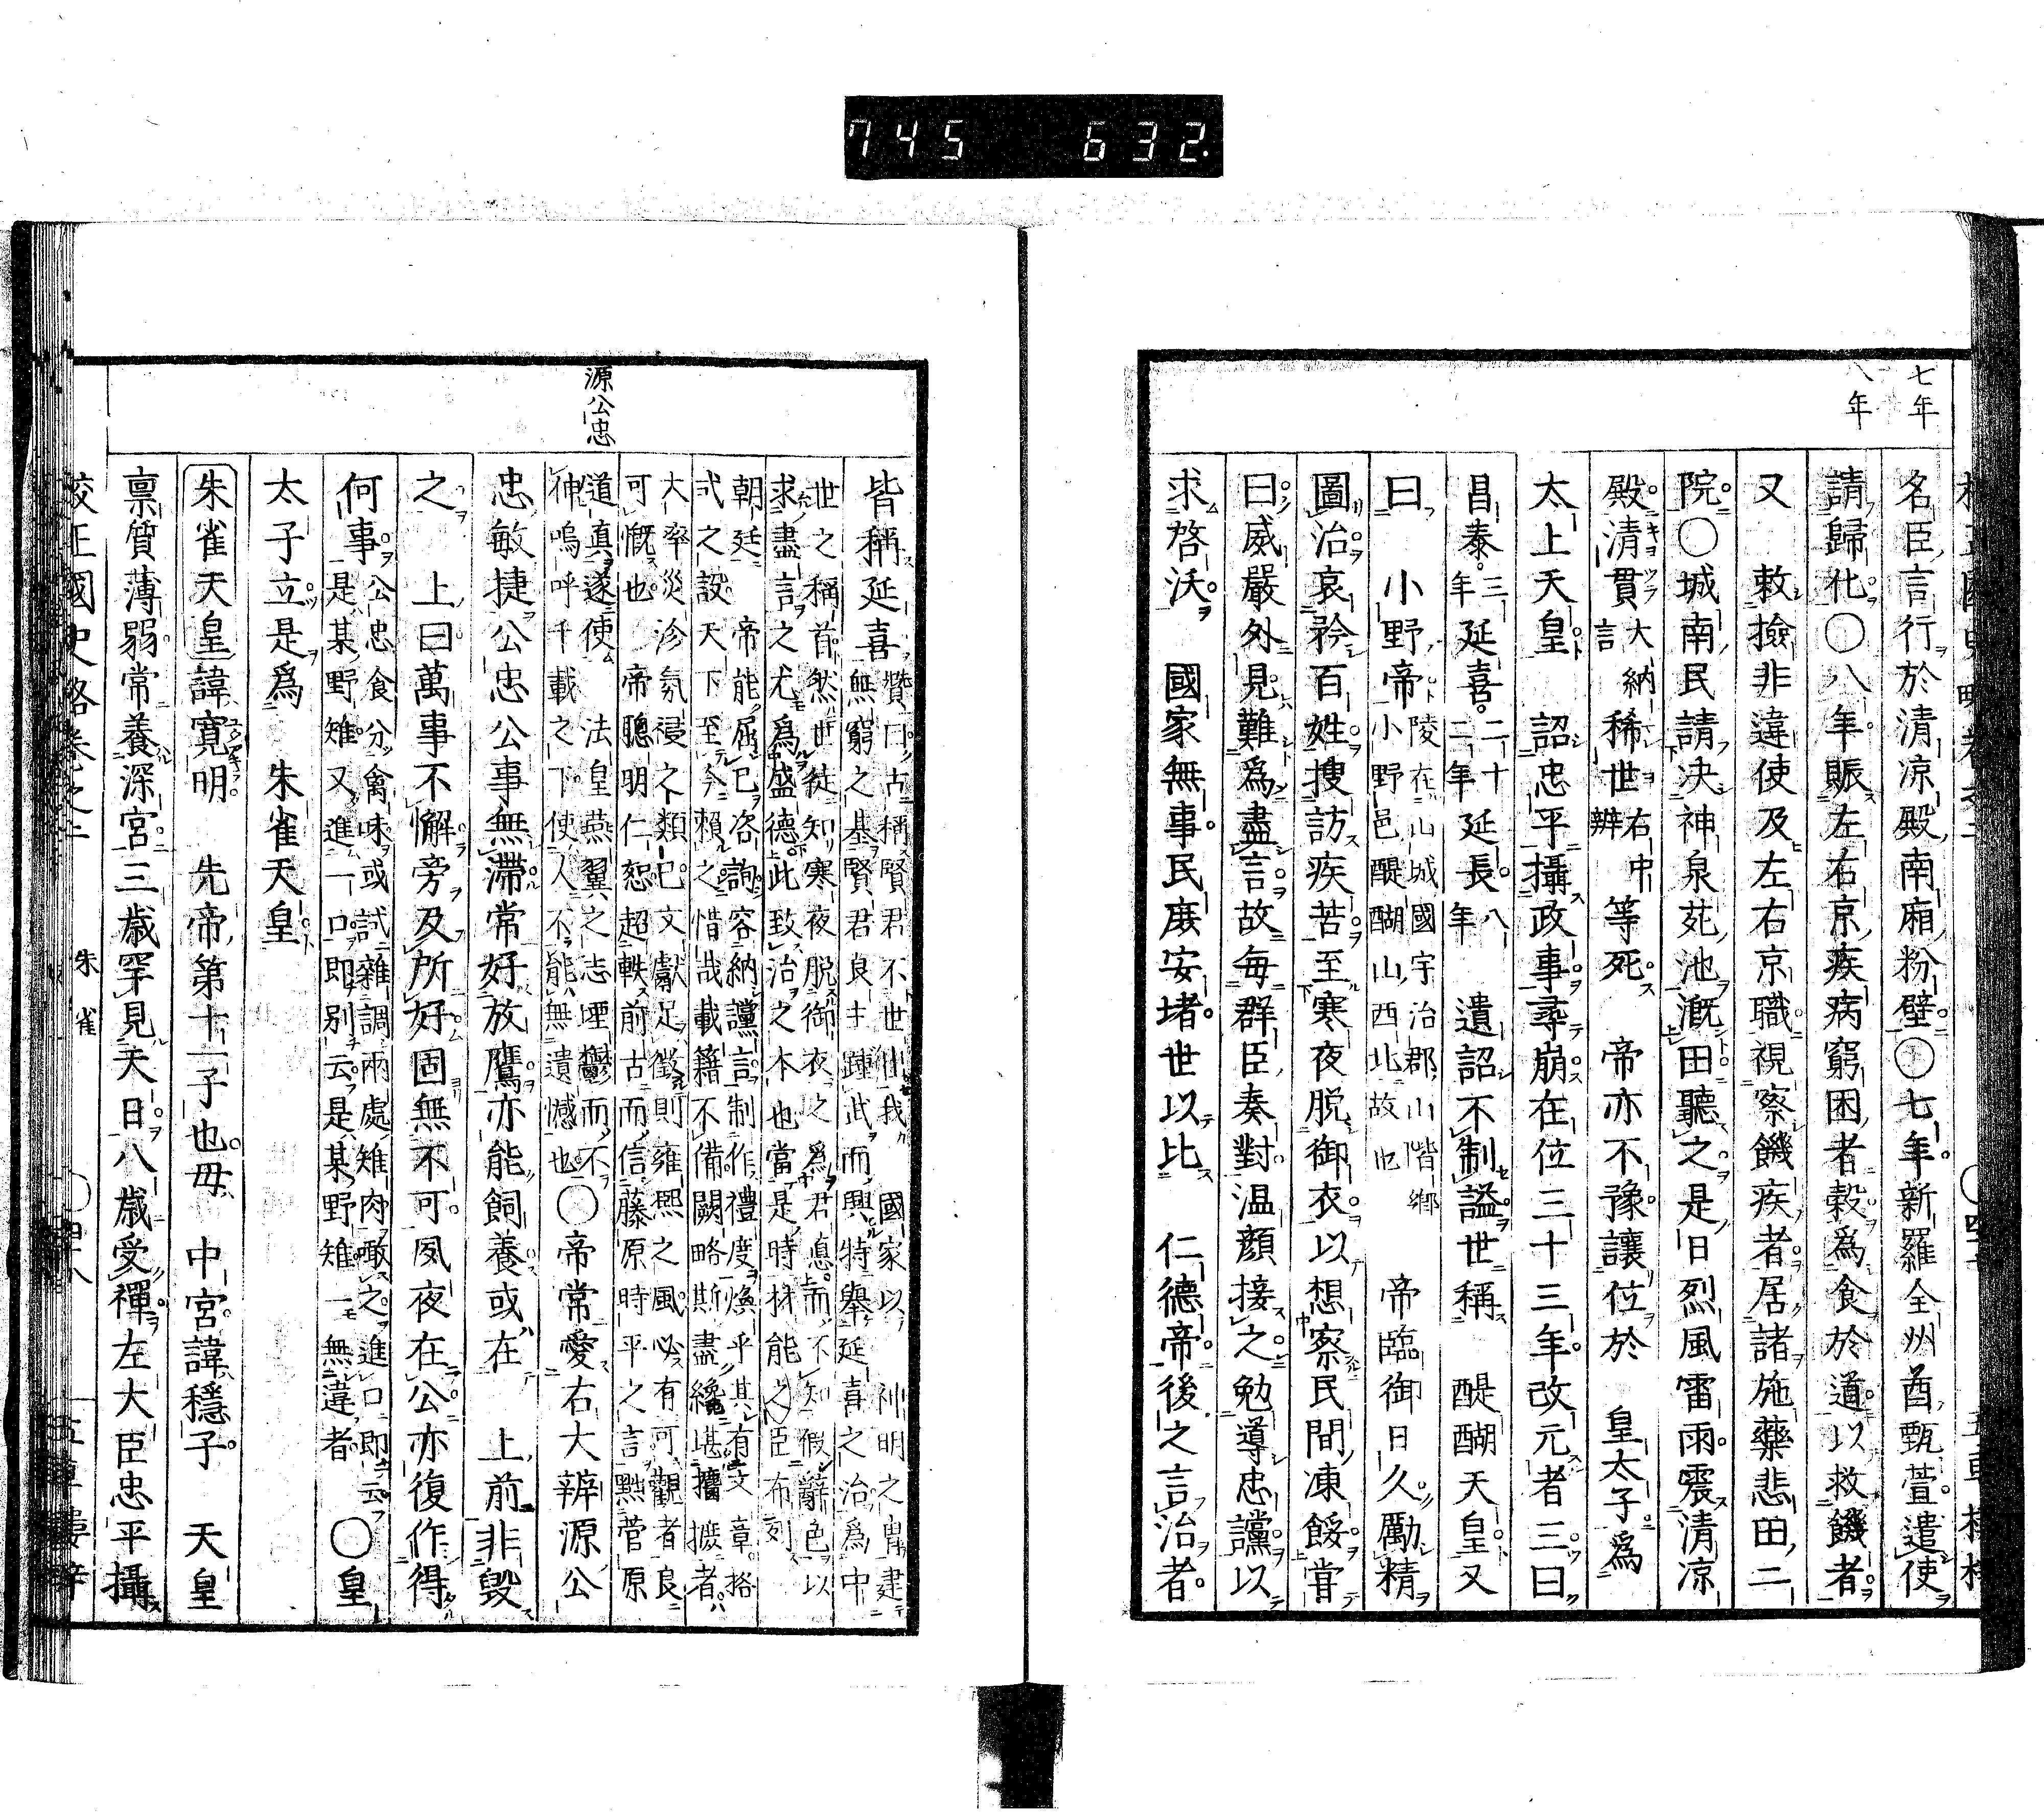 745 632.
七年
八年
名臣言行於清凉殿南廂粉壁○七年新羅全州酋甄萱遣使
請歸化○八年賑左右京疾病窮困者穀爲食於道以救饑者
又 敕撿非違使及左右京職視察饑疾者居諸施藥悲田二
院○城南民請决神泉苑池漑田聽之是日烈風雷雨震清凉
殿清貫大納言稀世右中辨等死 帝亦不豫讓位於 皇太子爲
太上天皇 詔忠平攝政事尋崩在位三十三年改元者三曰
昌泰三年延喜二十二年延長八年 遺詔不制謚世稱 醍醐天皇又
曰 小野帝陵在山城國宇治郡山階鄉小野邑醍醐山西北故也 帝臨御日久勵精
圖治哀矜百姓搜訪疾苦至寒夜脱御衣以想察民間凍餒嘗
曰威嚴外見難爲盡言故每群臣奏對温顔接之勉導忠讜以
求啓沃 國家無事民庶安堵世以比 仁德帝後之言治者
源公忠
皆稱延喜贊曰古稱賢君不世出我 國家以 神明之胄建
無窮之基賢君良主踵武而興特擧延喜之治爲中
世之稱首然世徒知寒夜脱御衣之爲君德而不知假辭色以
求盡言之尤爲盛德此致治之本也當是時材能之臣布列
朝廷 帝能屈己咨詢容納讜言制作禮度煥乎其有文章格
式之設天下至今賴之惜哉載籍不備闕略斯盡纔堪攟摭者
大率災沴氛祲之類已文獻足徵則雍熙之風必有可觀者良
可慨也 帝聰明仁恕超軼前古而信藤原時平之言黜菅原
道眞遂使 法皇燕翼之志堙鬱而不
伸嗚呼千載之下使人不能無遺憾也○帝常愛右大辨源公
忠敏捷公忠公事無滯常好放鷹亦能飼養或在 上前非毀
之 上曰萬事不懈旁及所好固無不可夙夜在公亦復作得
何事公忠食分禽味或試雜調兩處雉肉噉之進口即云
是某野雉又進一口即别云是某野雉一無違者○皇
太子立是爲 朱雀天皇
朱雀天皇諱寛明 先帝第十一子也母 中宮諱穩子 天皇
禀質薄弱常養深宮三歳罕見天日八歳受禪左大臣忠平攝
校正國史略卷之二 朱雀 ○四十八